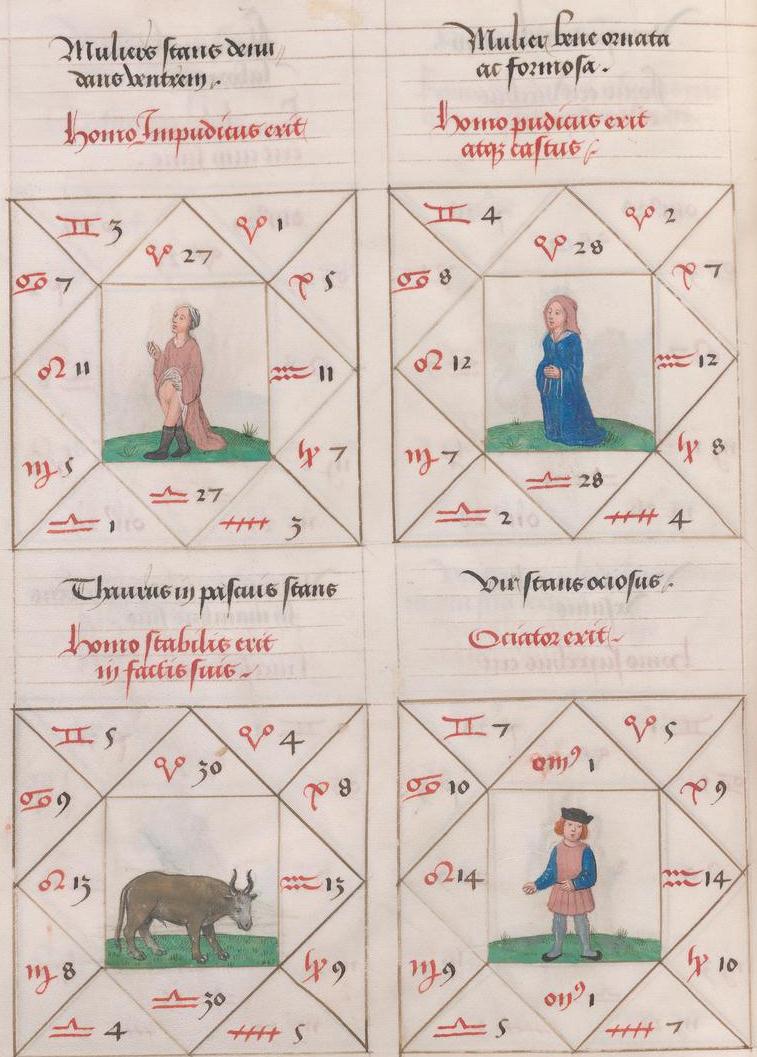 Muliers stans denu
dans ventrem.
Homo Impudicus erit
Mulier bene ornata
ac formosa.
Homo pudicus erit
atqz castus
♊ 3
♈ 27
♈ 1
♋ 7
♓ 5
♌ 11
♒ 11
♍ 5
♎ 27
♑ 7
♎ 1
♐ 3
♊ 4
♈ 28
♈ 2
♋ 8
♓ 7
♌ 12
♒ 12
♍ 7
♎ 28
♑ 8
♎ 2
♐ 4
Thaurus in pascuis stans
Homo stabilis erit
in factis suis
Vir stans ociosus.
Ociator erit
♊ 5
♈ 30
♈ 4
♋ 9
♓ 8
♌ 13
♒ 13
♍ 8
♎ 30
♑ 9
♎ 4
♐ 5
♊ 7
1
♈ 5
♋ 10
♓ 9
♌ 14
♒ 14
♍ 9
1
♑ 10
♎ 5
♐ 7